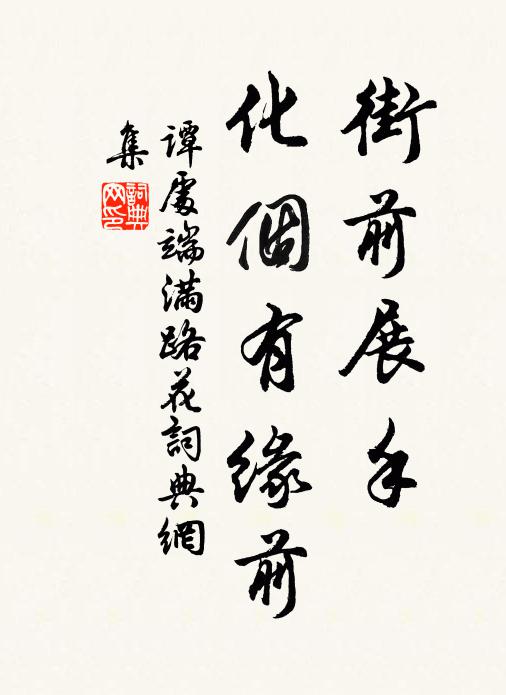 街前展手
化個有緣前
譚處端滿路花詞典網
集
詞典網印